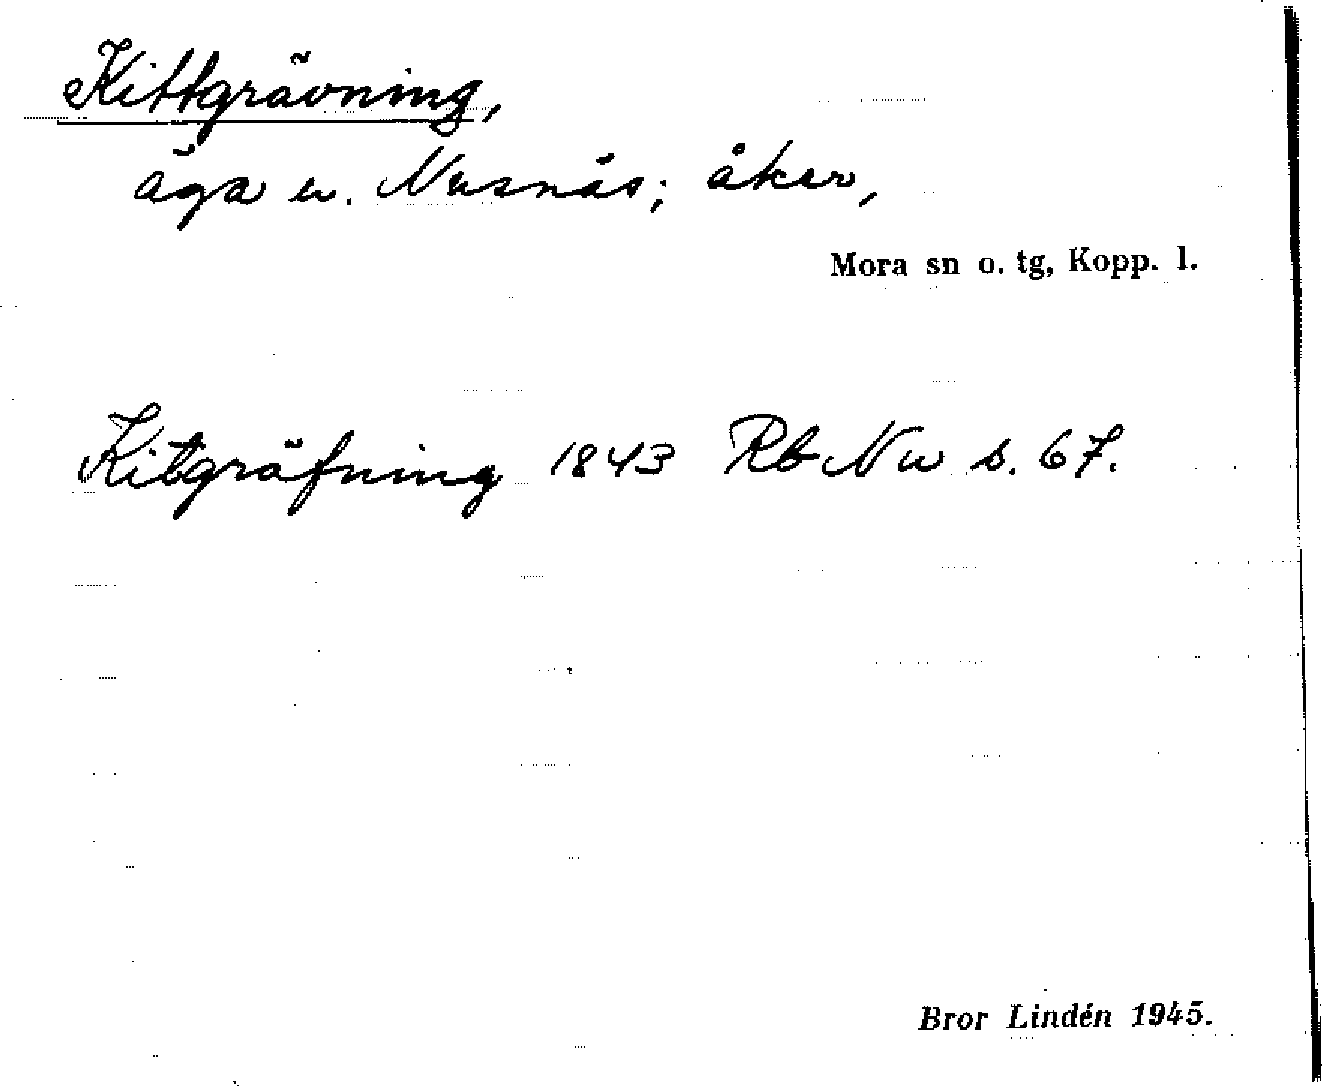 Kittgrävning,
äga u. Nusnäs; åker,
Mora sn o. tg, Kopp. l.
Kitgräfning 1843 Rb Nu s. 67.
Bror Lindén 1945.